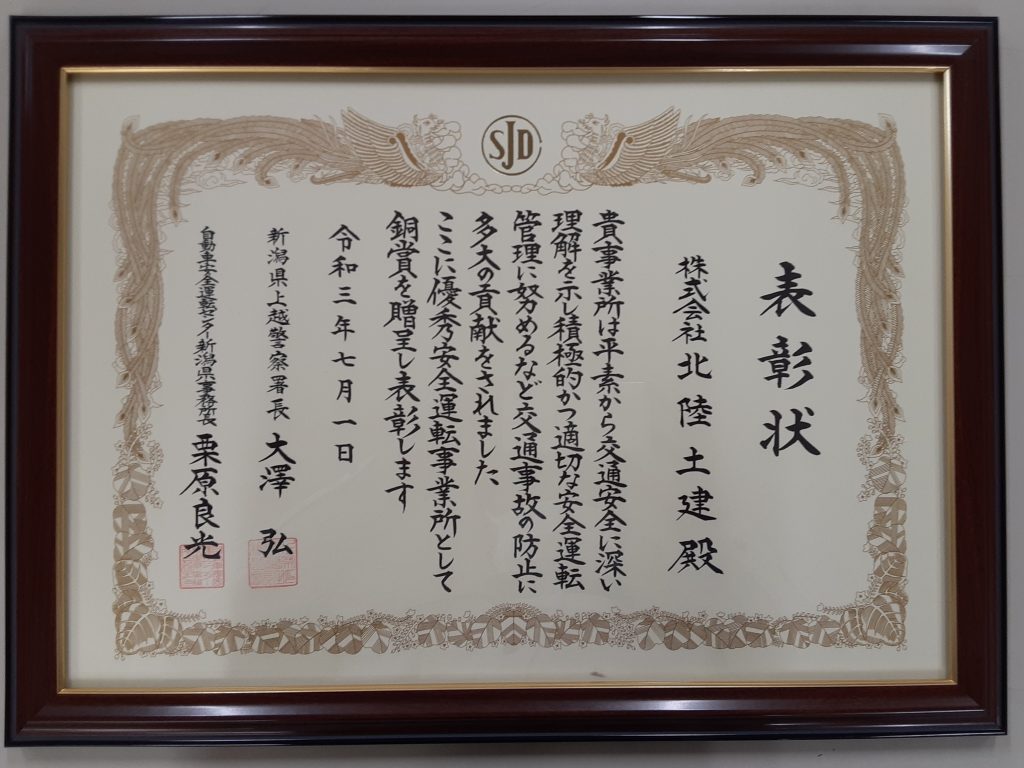 SJD
表彰状
株式会社北陸土建殿
貴事業所は平素から交通安全に深い
理解を示し積極的かつ適切な安全運転
管理に努めるなど交通事故の防止に
多大の貢献をされました
ここに優秀安全運転事業所として
銅賞を贈呈し表彰します
令和三年七月一日
新潟県上越警察署長 大澤 弘
自動車安全運転センター新潟県事務所長 栗原良光